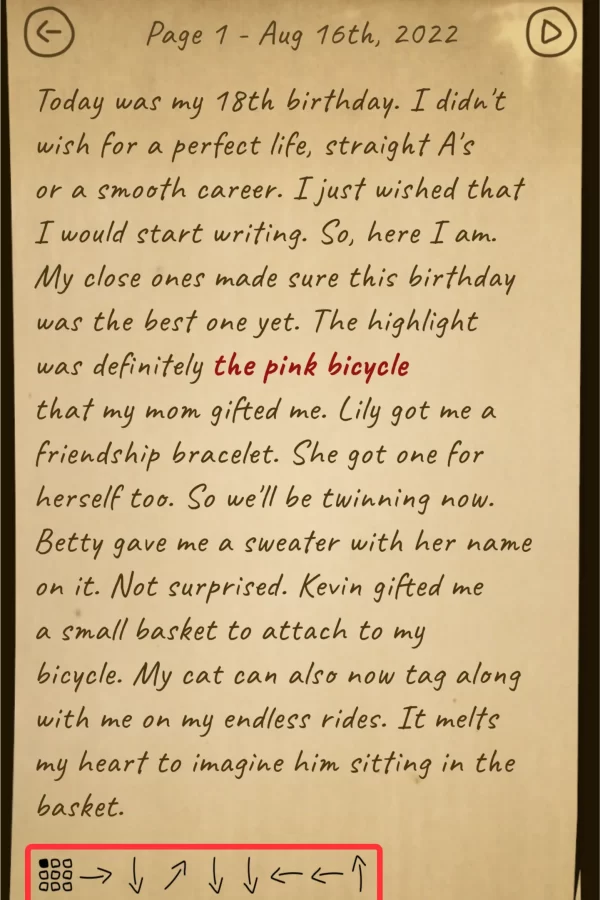 Page 1 - Aug 16th, 2022
Today was my 18th birthday. I didn't
wish for a perfect life, straight A's
or a smooth career. I just wished that
I would start writing. So, here I am.
My close ones made sure this birthday
was the best one yet. The highlight
was definitely the pink bicycle
that my mom gifted me. Lily got me a
friendship bracelet. She got one for
herself too. So we'll be twinning now.
Betty gave me a sweater with her name
on it. Not surprised. Kevin gifted me
a small basket to attach to my
bicycle. My cat can also now tag along
with me on my endless rides. It melts
my heart to imagine him sitting in the
basket.